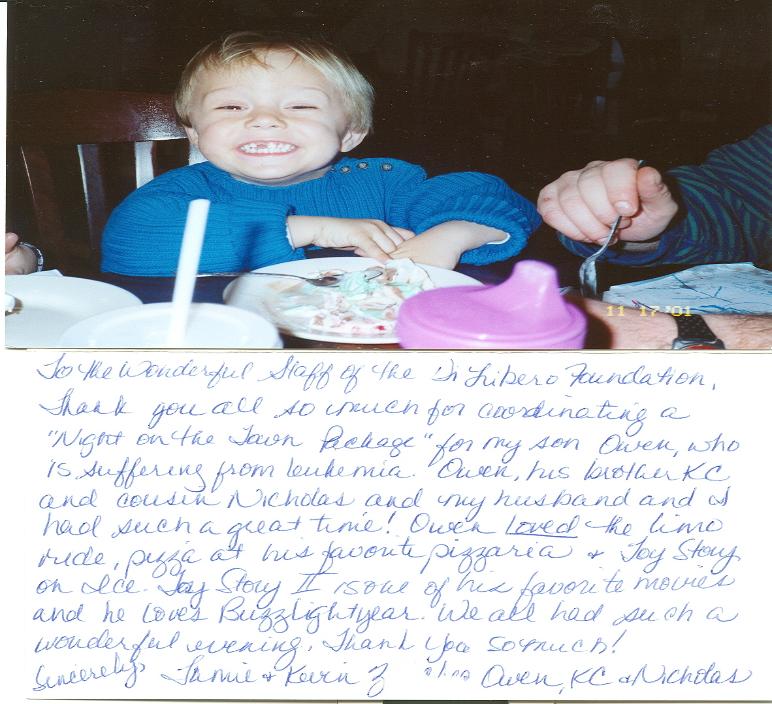 11 17 '01
To the Wonderful Staff of the DiLibero Foundation,
Thank you all so much for coordinating a
"Night on the Town Package" for my son Owen, who
is suffering from leukemia. Owen, his brother KC
and cousin Nicholas and my husband and I
had such a great time! Owen loved the limo
ride, pizza at his favorite pizzaria & Toy Story
on Ice. Toy Story II is one of his favorite movies
and he loves Buzzlightyear. We all had such a
wonderful evening. Thank you so much!
Sincerely, Jamie & Kevin Z Owen, KC & Nicholas